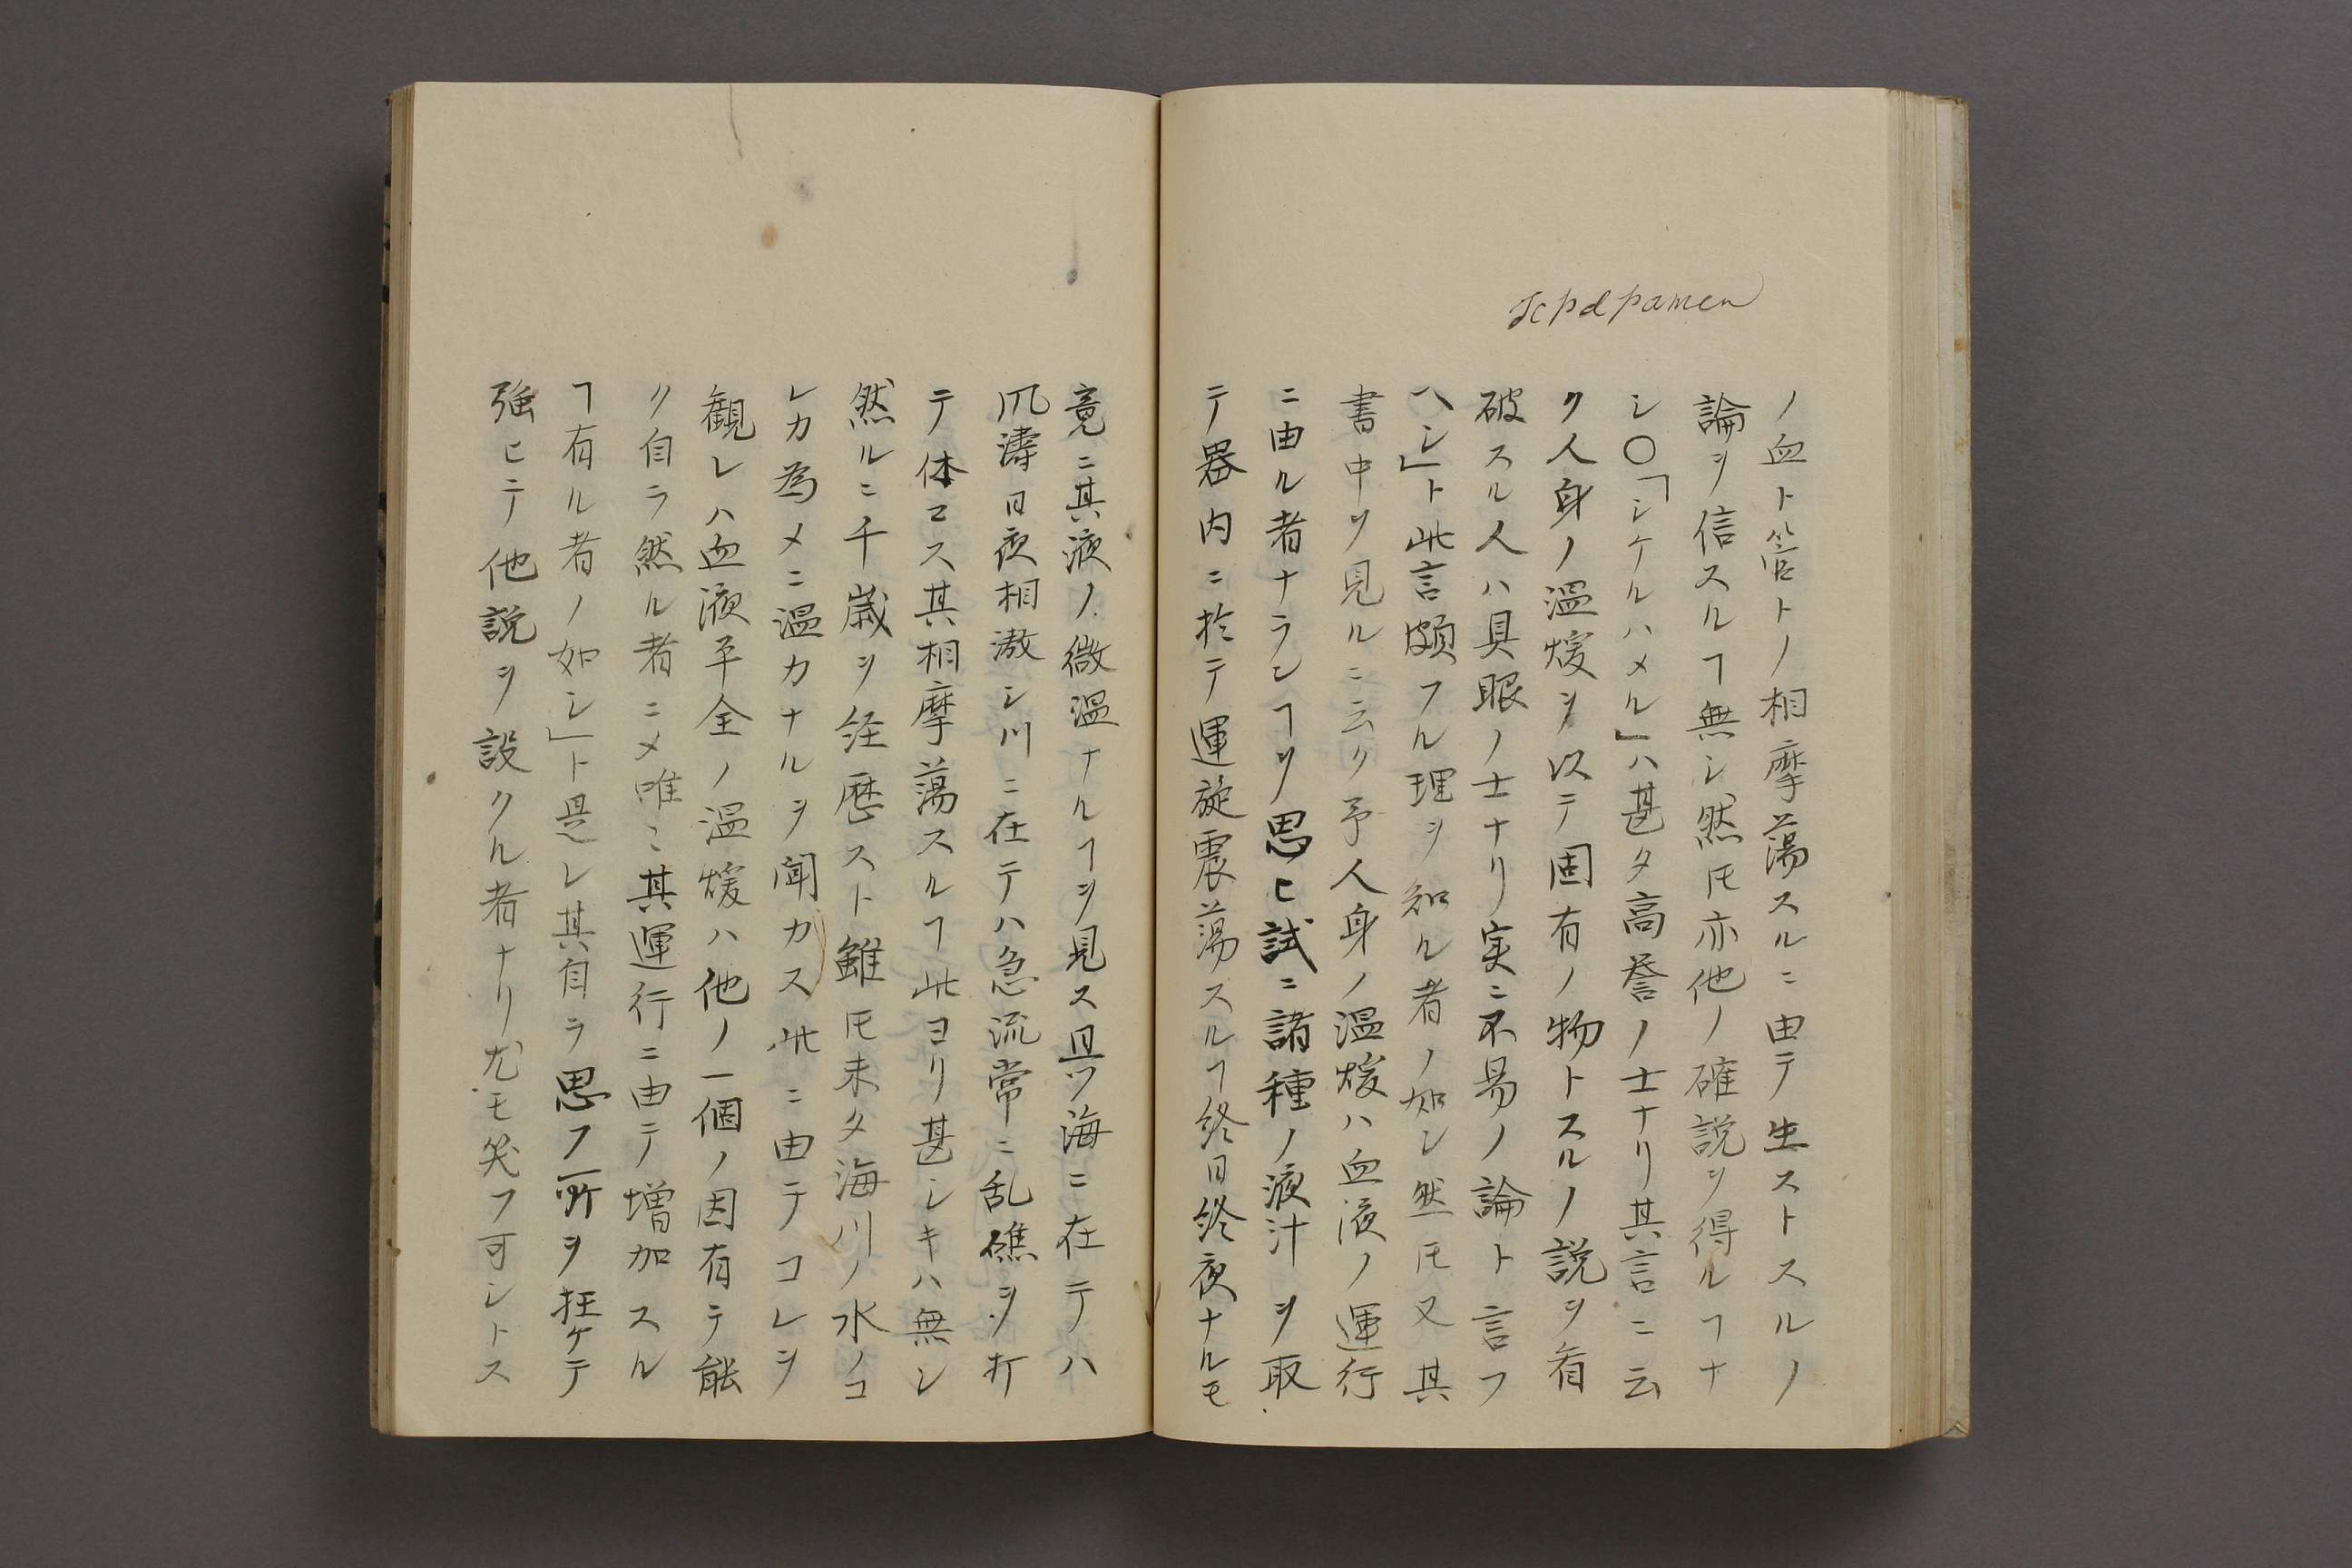 Jcpdpamen
ノ血ト管トノ相摩蕩スルニ由テ生ストスルノ
論ヲ信スルヿ無シ然𪜈亦他ノ確説ヲ得ルヿナ
シ〇「シケルハメル」ハ甚タ高誉ノ士ナリ其言ニ云
ク人身ノ温煖ヲ以テ固有ノ物トスルノ説ヲ看
破スル人ハ具眼ノ士ナリ実ニ不易ノ論ト言フ
ヘシ」ト此言頗フル理ヲ知ル者ノ如シ然𪜈又其
書中ヲ見ルニ云ク予人身ノ温煖ハ血液ノ運行
ニ由ル者ナランヿヲ思ヒ試ニ諸種ノ液汁ヲ取
テ器内ニ於テ運旋震蕩スルヿ終日終夜ナルモ
竟ニ其液ノ微温ナルヿヲ見ス且ツ海ニ在テハ
爪濤日夜相激シ川ニ在テハ急流常ニ乱礁ヲ打
テ休マス其相摩蕩スルヿ此ヨリ甚シキハ無シ
然ルニ千歳ヲ経歴スト雖𪜈未タ海川ノ水ノコ
レカ為メニ温カナルヲ聞カス此ニ由テコレヲ
観レハ血液平全ノ温煖ハ他ノ一個ノ因有テ能
ク自ラ然ル者ニメ唯ニ其運行ニ由テ増加スル
ヿ有ル者ノ如シ」ト是レ其自ラ思フ所ヲ抂ケテ
強ヒテ他説ヲ設クル者ナリ尤モ笑フ可シトス